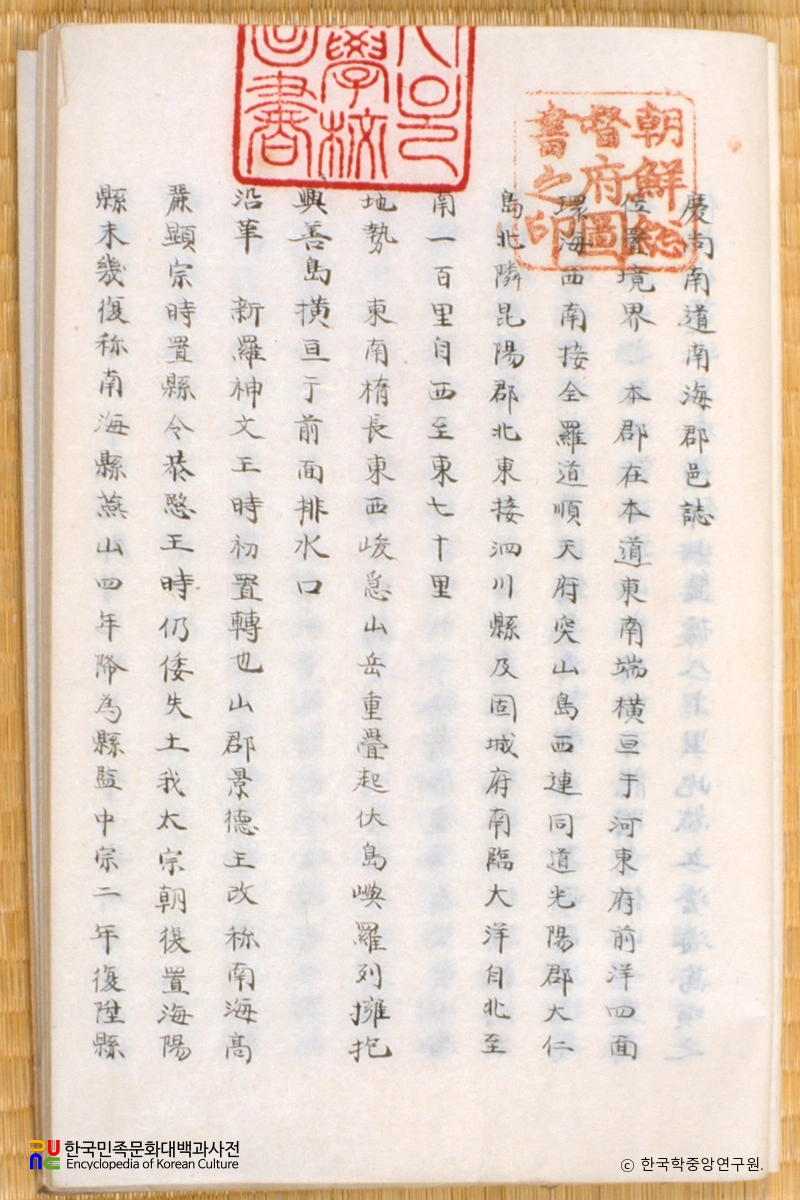 慶尙南道南海郡邑誌
位置境界 本郡在本道東南端橫亘于河東府前洋四面
環海西南接全羅道順天府突山島西連同道光陽郡大仁
島北隣昆陽郡北東接泗川縣及固城府南臨大洋自北至
南一百里自西至東七十里
地勢 東南楕長東西峻急山岳重疊起伏島嶼羅列擁抱
興善島橫亘于前面排水口
沿革 新羅神文王時初置轉也山郡景德王改称南海高
麗顯宗時置縣令恭愍王時仍倭失土我太宗朝復置海陽
縣未幾復称南海縣燕山四年降為縣監中宗二年復陞縣
朝鮮總
督府圖
書之印
學校
圖書
한국민족문화대백과사전
Encyclopedia of Korean Culture
© 한국학중앙연구원.